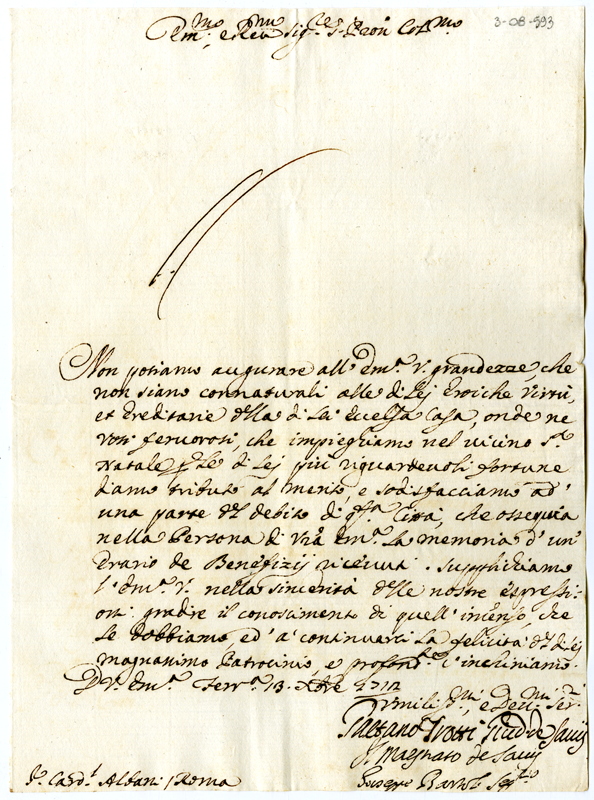 Em.mo, e Rev.mo Sig.re S.r Pron Col.mo
3-08-593
Non potiamo augurare all' Em.a V. grandezze, che
non siano connaturali alle di Lei Eroiche Virtù,
et Ereditarie della di Lei Eccelsa Casa, onde ne
voti fervorosi, che impieghiamo nel vicino S.to
Natale p le di Lej più riguardevoli fortune
diamo tributo al merito, e sodisfacciamo ad'
una parte del debito di q.sta Città, che ossequia
nella Persona di V.ra Em.a La memoria d' un'
Erario de Benefizij ricevuti. Supplichiamo
l' Em.a V. nella sincerità delle nostre espressi-
oni gradire il conoscimento di quell' incenso, che
Le dobbiamo ed' a' continuarci La felicità del di Lej
magnanimo Patrocinio, e profond.te l' inchiniamo.
D V. Em.a Ferr.a 13. Xbre 1712
Umiliss.mi, e Dev.mi Ser.ri
Gaetano Trotti Giud.e de Savij
Il Magistrato de Savij
Giuseppe Bartoli Seg.rio
S.r Card.l Albani / Roma